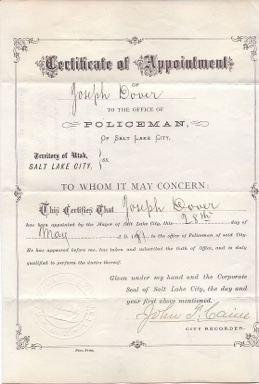 Certificate of Appointment
OF
Joseph Dover
TO THE OFFICE OF
POLICEMAN,
OF SALT LAKE CITY.
Territory of Utah,
SALT LAKE CITY,
} ss.
TO WHOM IT MAY CONCERN:
This Certifies That Joseph Dover
has been appointed by the Mayor of Salt Lake City, this 28th day of
May A.D. to the office of Policeman of said City.
He has appeared before me, has taken and subscribed the Oath of Office, and is duly
qualified to perform the duties thereof.
Given under my hand and the Corporate
Seal of Salt Lake City, the day and
year first above mentioned.
John T. Caine
CITY RECORDER.